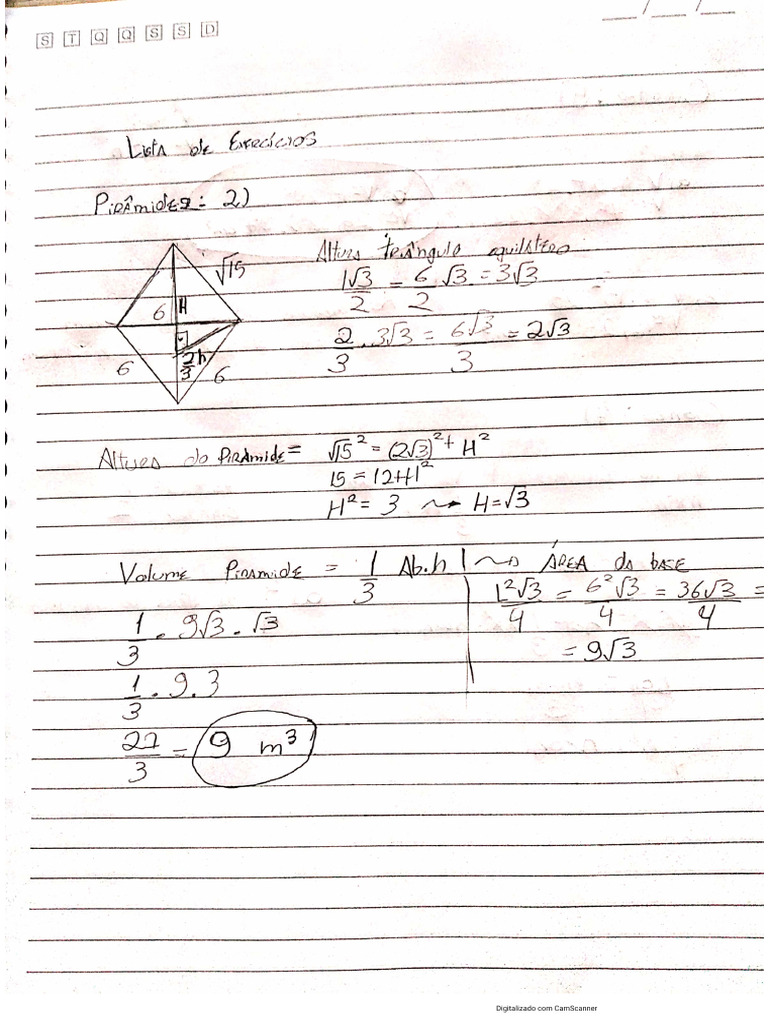 S T Q Q S S D
__/__/__
Lista de Exercícios
Pirâmides: 2)
Altura triângulo equilátero
√15
6
H
6
2/3 h
6
l√3/2 = 6/2 √3 = 3√3
2/3 . 3√3 = 6√3/3 = 2√3
Altura da Pirâmide = √15² = (2√3)² + H²
15 = 12+H²
H² = 3 ~→ H=√3
Volume Piramide = 1/3 Ab.h | ~→ Área da base
l²√3/4 = 6²√3/4 = 36√3/4 =
= 9√3
1/3 . 9√3 . √3
1/3 . 9.3
27/3 = 9 m³
Digitalizado com CamScanner